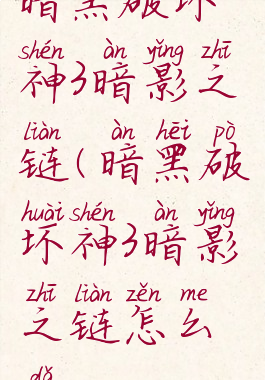 暗黑破坏
shén àn yǐng zhī
神3暗影之
liàn àn hēi pò
链(暗黑破
huài shén àn yǐng
坏神3暗影
zhī liàn zěn me
之链怎么
dǎ